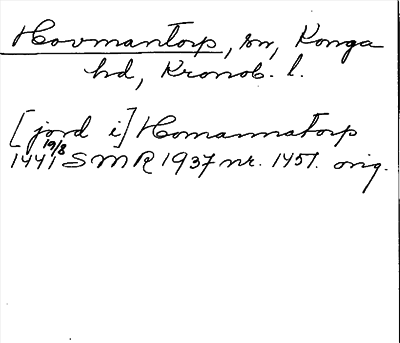 Hovmantorp, sn, Konga
hd, Kronob. l.
[jord i] Homannatorp
1441 19/8 SMR 1937 nr. 1457. orig.